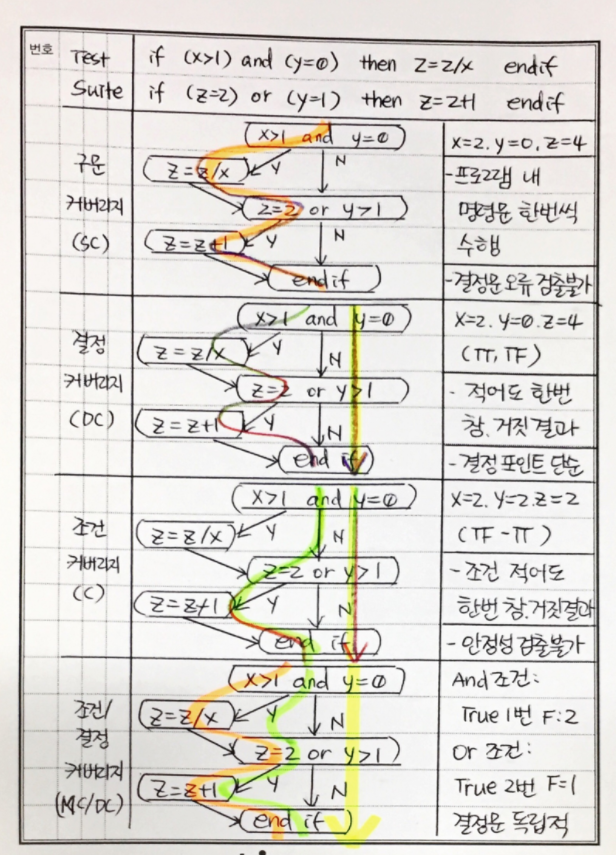 번호
Test
Suite
if (x>1) and (y=0) then z=z/x endif
if (z=2) or (y=1) then z=z+1 endif
구문
커버리지
(SC)
x>1 and y=0
z=z/x
Y
N
z=2 or y>1
z=z+1
Y
N
endif
x=2. y=0. z=4
-프로그램 내
명령문 한번씩
수행
-결정문 오류 검출불가
결정
커버리지
(DC)
x>1 and y=0
z=z/x
Y
N
z=2 or y>1
z=z+1
Y
N
end if
x=2. y=0. z=4
(TT, TF)
- 적어도 한번
참. 거짓 결과
- 결정 포인트 단순
조건
커버리지
(C)
x>1 and y=0
z=z/x
Y
N
z=2 or y>1
z=z+1
Y
N
end if
x=2. y=2. z=2
(TF-TT)
- 조건 적어도
한번 참. 거짓결과
- 안정성 검출불가
조건/
결정
커버리지
(MC/DC)
x>1 and y=0
z=z/x
Y
N
z=2 or y>1
z=z+1
Y
N
end if
And 조건:
True 1번 F:2
Or 조건:
True 2번 F=1
결정문 독립적